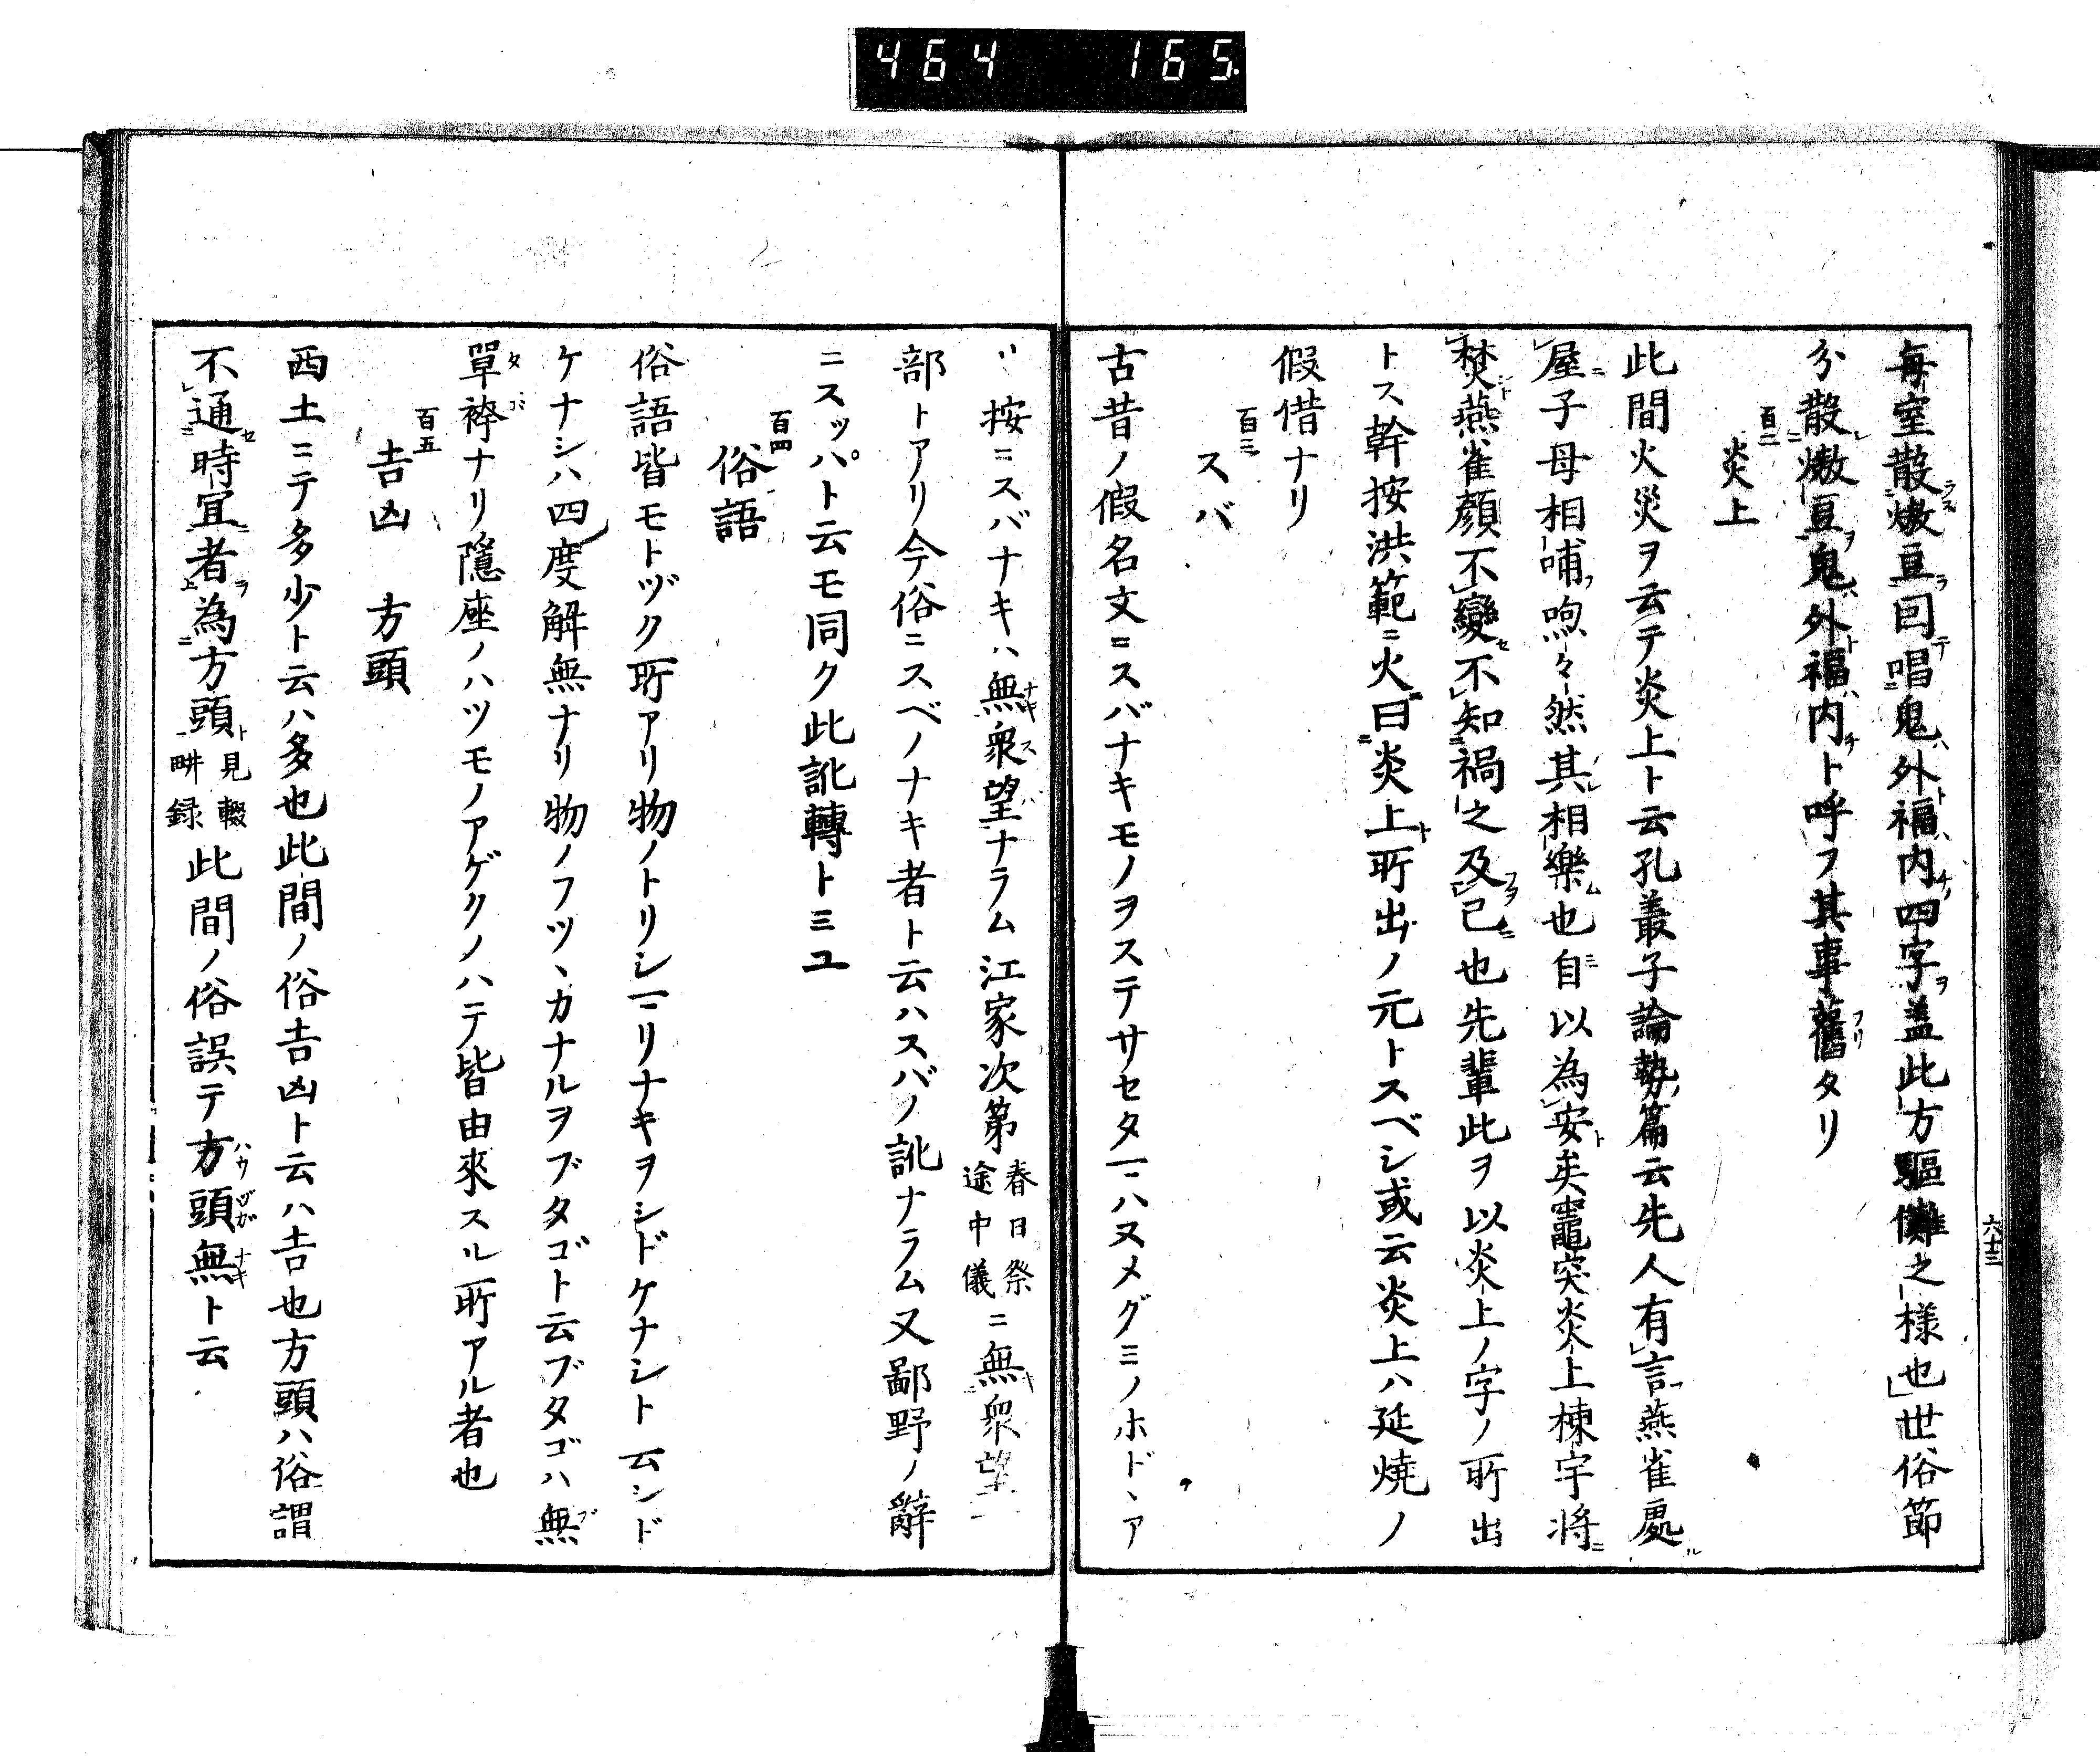 464 165.
六十三
毎室散㷅豆因唱鬼外福内四字盖此方驅儺之様也世俗節
分散㷅豆鬼外福内ト呼フ其事舊タリ
百二
炎上
此間火災ヲ云テ炎上ト云孔叢子論勢篇云先人有言燕雀處
屋子母相哺喣々然其相樂也自以為安矣竈突炎上棟宇将
焚燕雀顏不變不知禍之及己也先輩此ヲ以炎上ノ字ノ所出
トス幹按洪範ニ火曰炎上所出ノ元トスベシ或云炎上ハ延燒ノ
假借ナリ
百三
スバ
古昔ノ假名文ニスバナキモノヲステサセタヿハヌメグミノホドヽア
リ按ニスバナキハ無衆望ナラム江家次第春日祭途中儀ニ無衆望
部トアリ今俗ニスベノナキ者ト云ハスバノ訛ナラム又鄙野ノ辭
ニスッパト云モ同ク此訛轉トミユ
百四
俗語
俗語皆モトヅク所アリ物ノトリシヿリナキヲシドケナシト云シド
ケナシハ四度解無ナリ物ノフツヽカナルヲブタゴト云ブタゴハ無
單袴ナリ隱座ノハツモノアゲクノハテ皆由來スル所アル者也
百五
吉凶 方頭
西土ニテ多少ト云ハ多也此間ノ俗吉凶ト云ハ吉也方頭ハ俗謂
不通時冝者為方頭見輟畊録此間ノ俗誤テ方頭無ト云